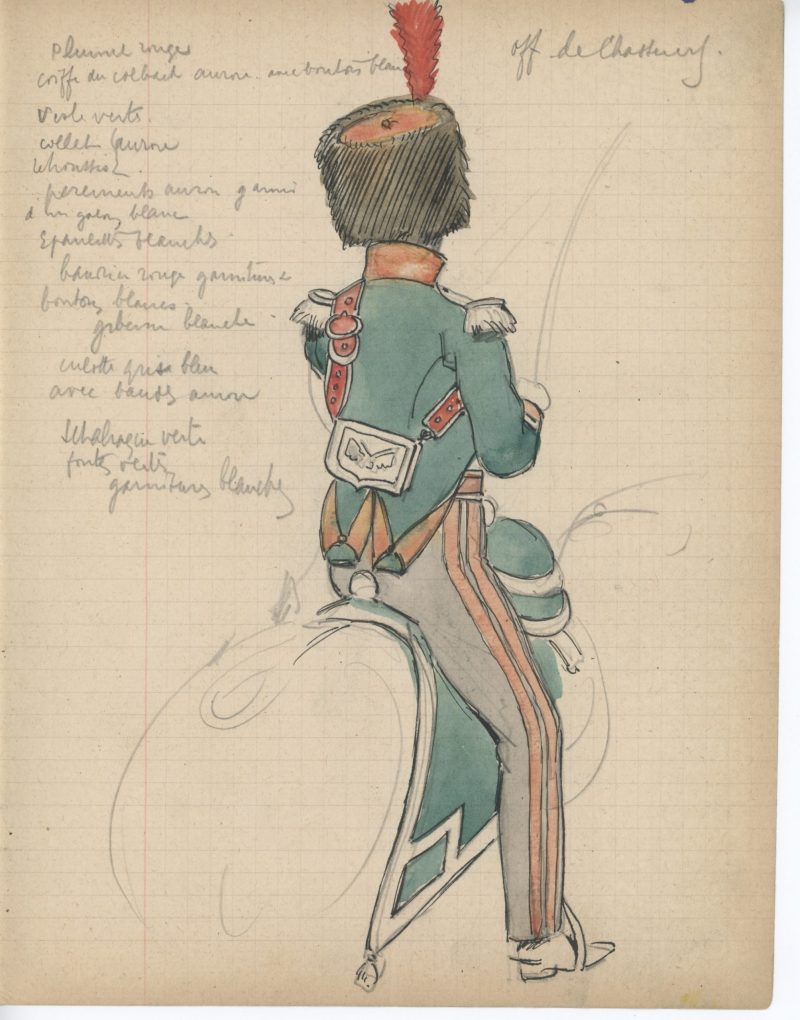 off de Chasseurs.
Plumet rouge
coiffe du colback aurore avec boutons blancs
Veste verte
collet aurore
parements aurore garnis
d'un galon blanc
Epaulettes blanches
baudrier rouge garniture
boutons blancs
giberne blanche
culotte grise bleu
avec bandes aurore
schabraque verte
fontes vertes
garnitures blanches